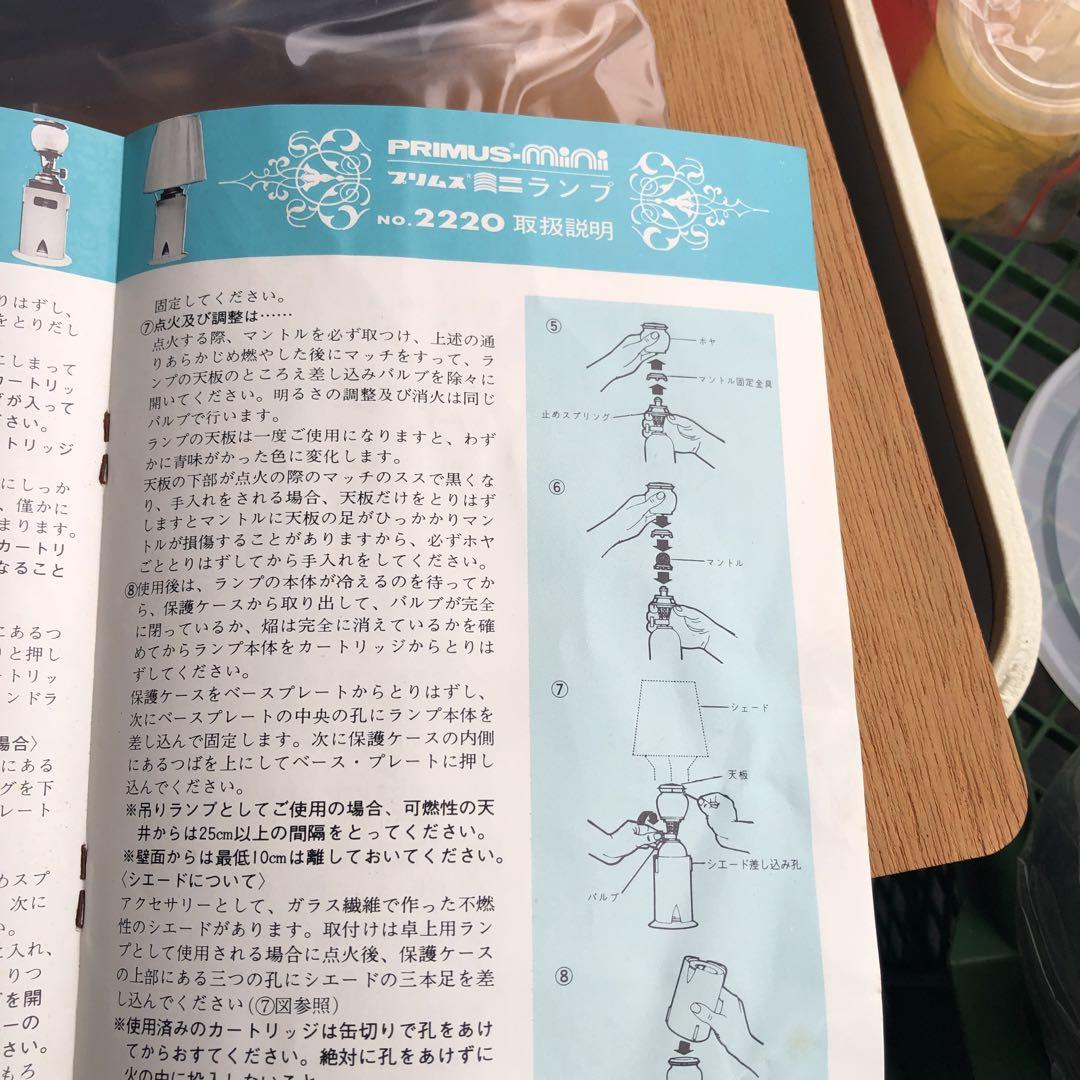 PRIMUS®-mini
プリムス®ミニランプ
NO.2220 取扱説明
りはずし、
をとりだし
にしまって
カートリッ
グが入って
ださい。
ートリッジ
にしっか
、僅かに
まります。
カートリ
なること
にあるつ
りと押し
ートリッ
ンドラ
場合〉
にある
グを下
プレート
めスプ
。次に
い。
と入れ、
りつ
を開
ーの
さい。
もろ
固定してください。
⑦点火及び調整は……
点火する際、マントルを必ず取つけ、上述の通
りあらかじめ燃やした後にマッチをすって、ラ
ンプの天板のところえ差し込みバルブを除々に
開いてください。明るさの調整及び消火は同じ
バルブで行います。
ランプの天板は一度ご使用になりますと、わず
かに青味がかった色に変化します。
天板の下部が点火の際のマッチのススで黒くな
り、手入れをされる場合、天板だけをとりはず
しますとマントルに天板の足がひっかかりマン
トルが損傷することがありますから、必ずホヤ
ごととりはずしてから手入れをしてください。
⑧使用後は、ランプの本体が冷えるのを待ってか
ら、保護ケースから取り出して、バルブが完全
に閉っているか、焔は完全に消えているかを確
めてからランプ本体をカートリッジからとりは
ずしてください。
保護ケースをベースプレートからとりはずし、
次にベースプレートの中央の孔にランプ本体を
差し込んで固定します。次に保護ケースの内側
にあるつばを上にしてベース・プレートに押し
込んでください。
※吊りランプとしてご使用の場合、可燃性の天
井からは25cm以上の間隔をとってください。
※壁面からは最低10cmは離しておいてください。
〈シエードについて〉
アクセサリーとして、ガラス繊維で作った不燃
性のシエードがあります。取付けは卓上用ラン
プとして使用される場合に点火後、保護ケース
の上部にある三つの孔にシエードの三本足を差
し込んでください(⑦図参照)
※使用済みのカートリッジは缶切りで孔をあけ
てからおすてください。絶対に孔をあけずに
火の中に投入しないこと
⑤
ホヤ
マントル固定金具
止めスプリング
⑥
マントル
⑦
シェード
天板
シエード差し込み孔
バルブ
⑧